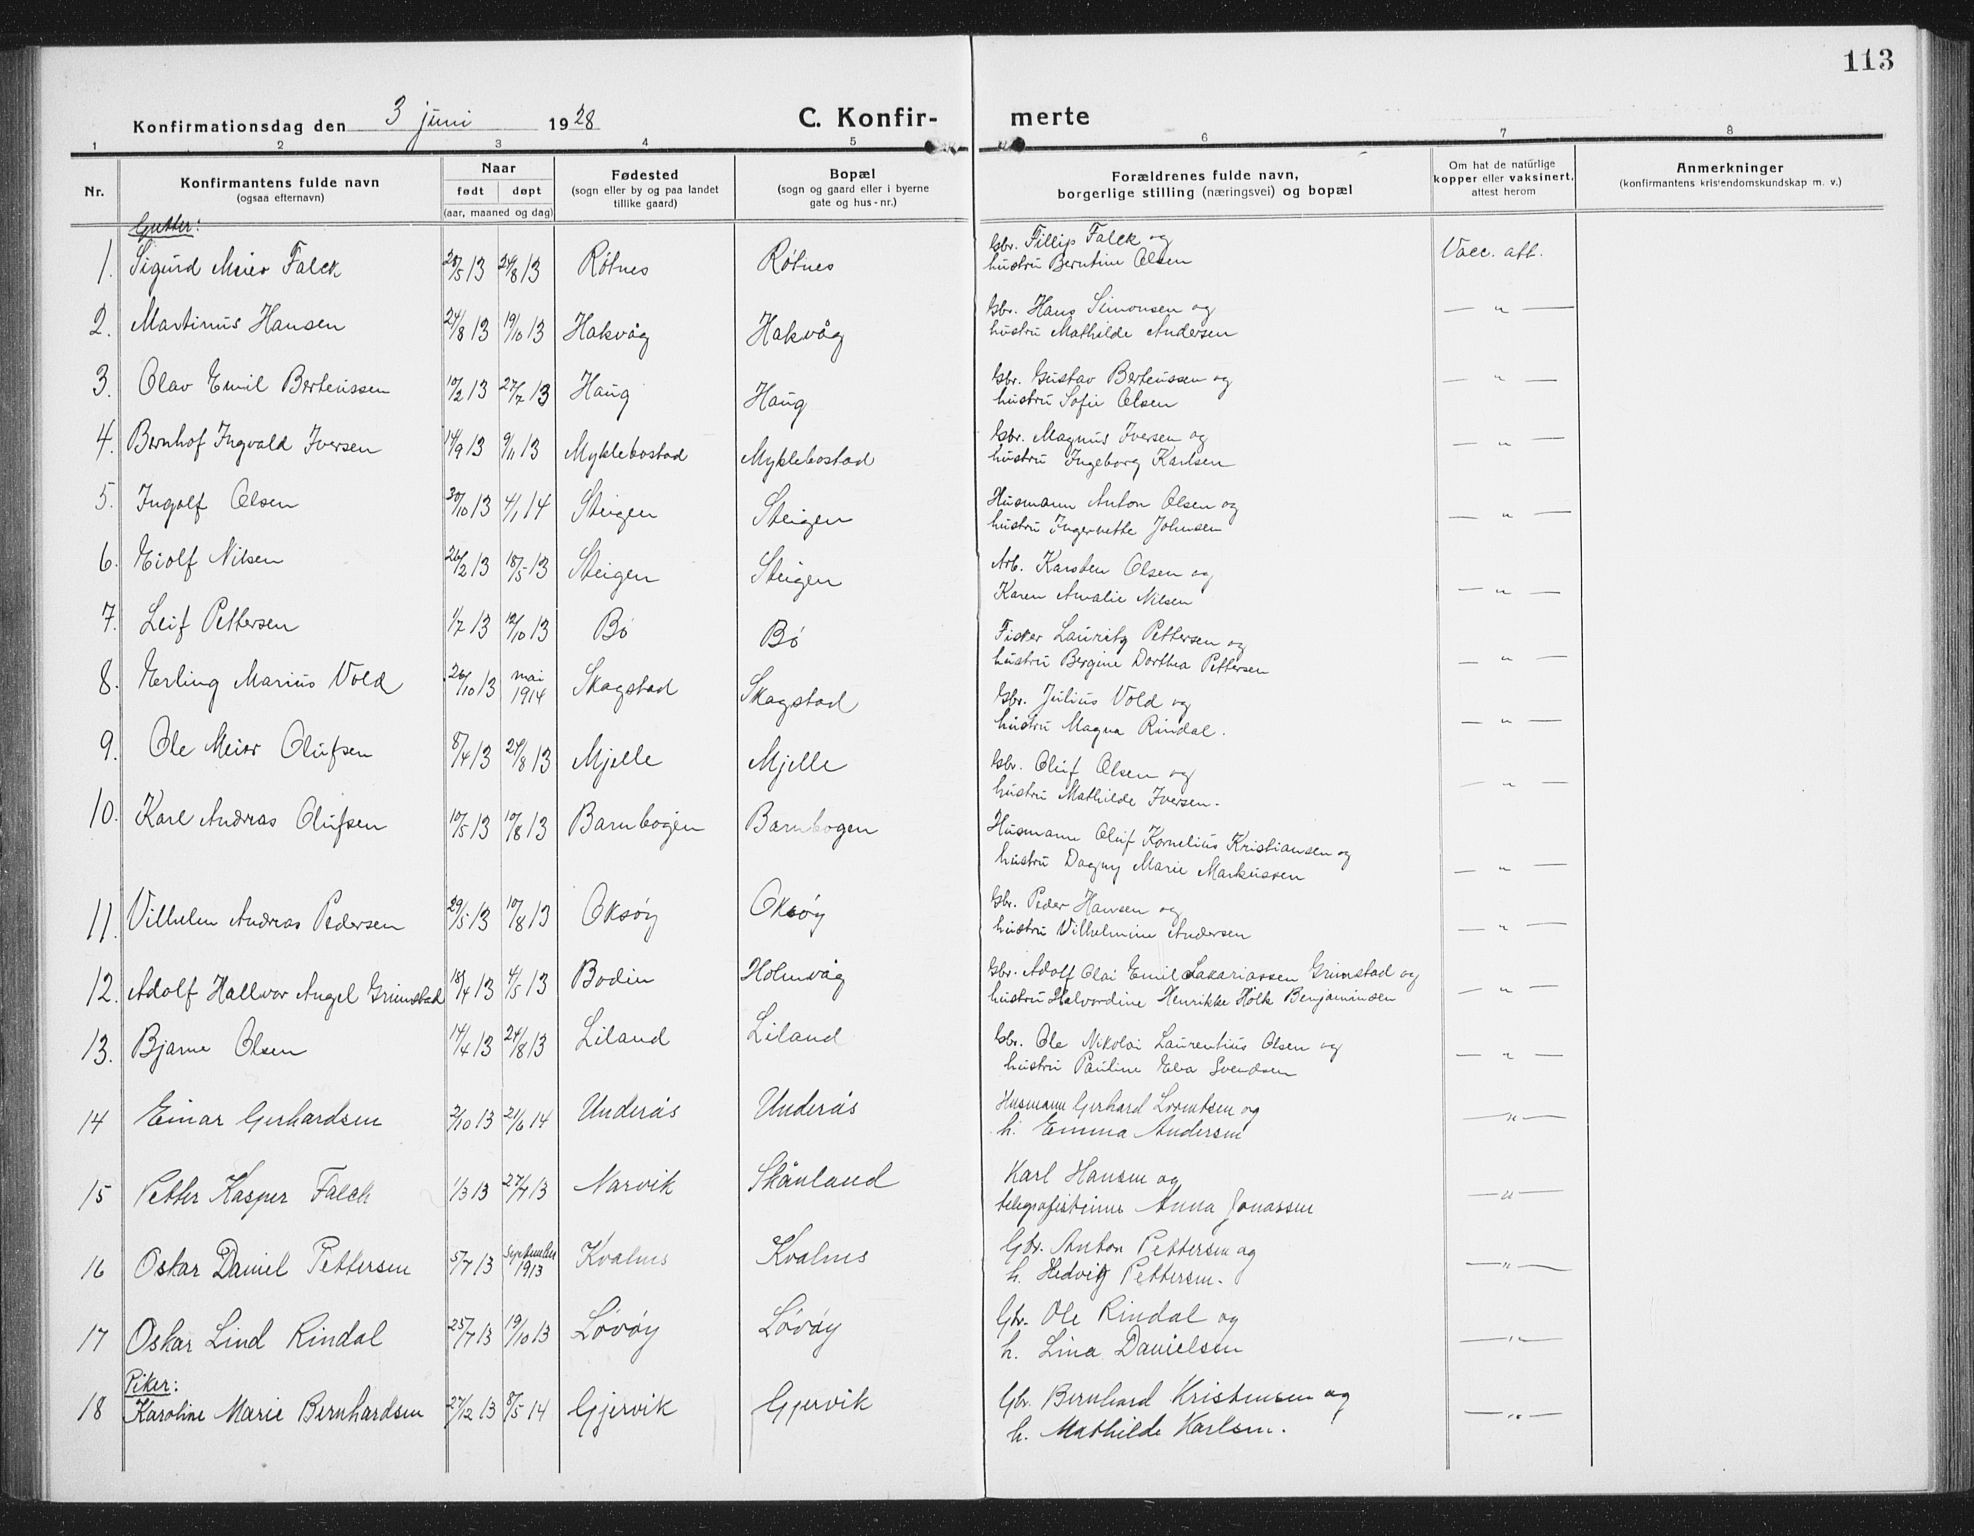 113
Konfirmationsdag den 3 juni 1928 C. Konfir- merte
1 2 3 4 5 6 7 8
Nr. Konfirmantens fulde navn (ogsaa efternavn) Naar født døpt (aar, maaned og dag) Fødested (sogn eller by og paa landet tillike gaard) Bopæl (sogn og gaard eller i byerne gate og hus-nr.) Forældrenes fulde navn, borgerlige stilling (næringsvei) og bopæl Om hat de natúrlige kopper eller vaksinert, attest herom Anmerkninger (konfirmantens kristendomskundskap m. v.)
Gutter:
1. Sigurd Meier Falck 20/5 13 24/8 13 Røtnes Røtnes Gbr. Fillip Falck og
hustru Berntine Olsen Vacc. att.
2. Martinus Hansen 24/8 13 19/10 13 Hakvåg Hakvåg Gbr. Hans Simonsen og
hustru Mathilde Andersen — " —
3. Olav Emil Berteussen 10/2 13 27/7 13 Haug Haug Gbr. Gustav Berteussen og
hustru Sofie Olsen — " —
4. Bernhof Ingvald Iversen 14/9 13 9/11 13 Myklebostad Myklebostad Gbr. Magnus Iversen og
hustru Ingeborg Karlsen — " —
5. Ingolf Olsen 30/10 13 4/1 14 Steigen Steigen Husmann Anton Olsen og
hustru Ingernette Johnsen — " —
6. Eiolf Nilsen 26/2 13 18/5 13 Steigen Steigen Arb. Karsten Olsen og
Karen Amalie Nilsen — " —
7. Leif Pettersen 1/7 13 12/10 13 Bø Bø Fisker Lauritz Pettersen og
hustru Bergine Dorthea Pettersen — " —
8. Erling Marius Vold 26/10 13 mai 1914 Skagstad Skagstad Gbr. Julius Vold og
hustru Magna Rindal. — " —
9. Ole Meier Olufsen 8/4 13 24/8 13 Mjelle Mjelle Gbr. Oluf Olsen og
hustru Mathilde Iversen. — " —
10. Karl Andreas Olufsen 10/5 13 10/8 13 Barnbogen Barnbogen Husmann Oluf Kornelius Kristiansen og
hustru Dagny Marie Markussen — " —
11. Vilhelm Andreas Pedersen 29/5 13 10/8 13 Oksøy Oksøy Gbr. Peder Hansen og
hustru Vilhelmine Andersen — " —
12. Adolf Hallvor Angel Grimstad 18/4 13 4/5 13 Bodin Holmvåg Gbr. Adolf Olai Emil Sakariassen Grimstad og
hustru Halvordine Henrikke Holk Benjaminsen — " —
13. Bjarne Olsen 14/4 13 24/8 13 Liland Liland Gbr. Ole Nikolai Laurentius Olsen og
hustru Pauline Eva Svendsen — " —
14 Einar Gerhardsen 2/10 13 21/6 14 Underås Underås Husmann Gerhard Lorentsen og
h. Emma Andersen — " —
15 Petter Kasper Falch 1/3 13 27/4 13 Narvik Skånland Karl Hansen og
telegrafistinne Anna Jonassen — " —
16 Oskar Daniel Pettersen 5/7 13 September 1913 Kvalnes Kvalnes Gbr. Anton Pettersen og
h. Hedvig Pettersen. — " —
17 Oskar Lind Rindal 25/7 13 19/10 13 Løvøy Løvøy Gbr. Ole Rindal og
h. Lina Danielsen — " —
Piker:
18 Karoline Marie Bernhardsen 27/12 13 8/5 14 Gjervik Gjervik Gbr. Bernhard Kristensen og
h. Mathilde Karlsen. — " —